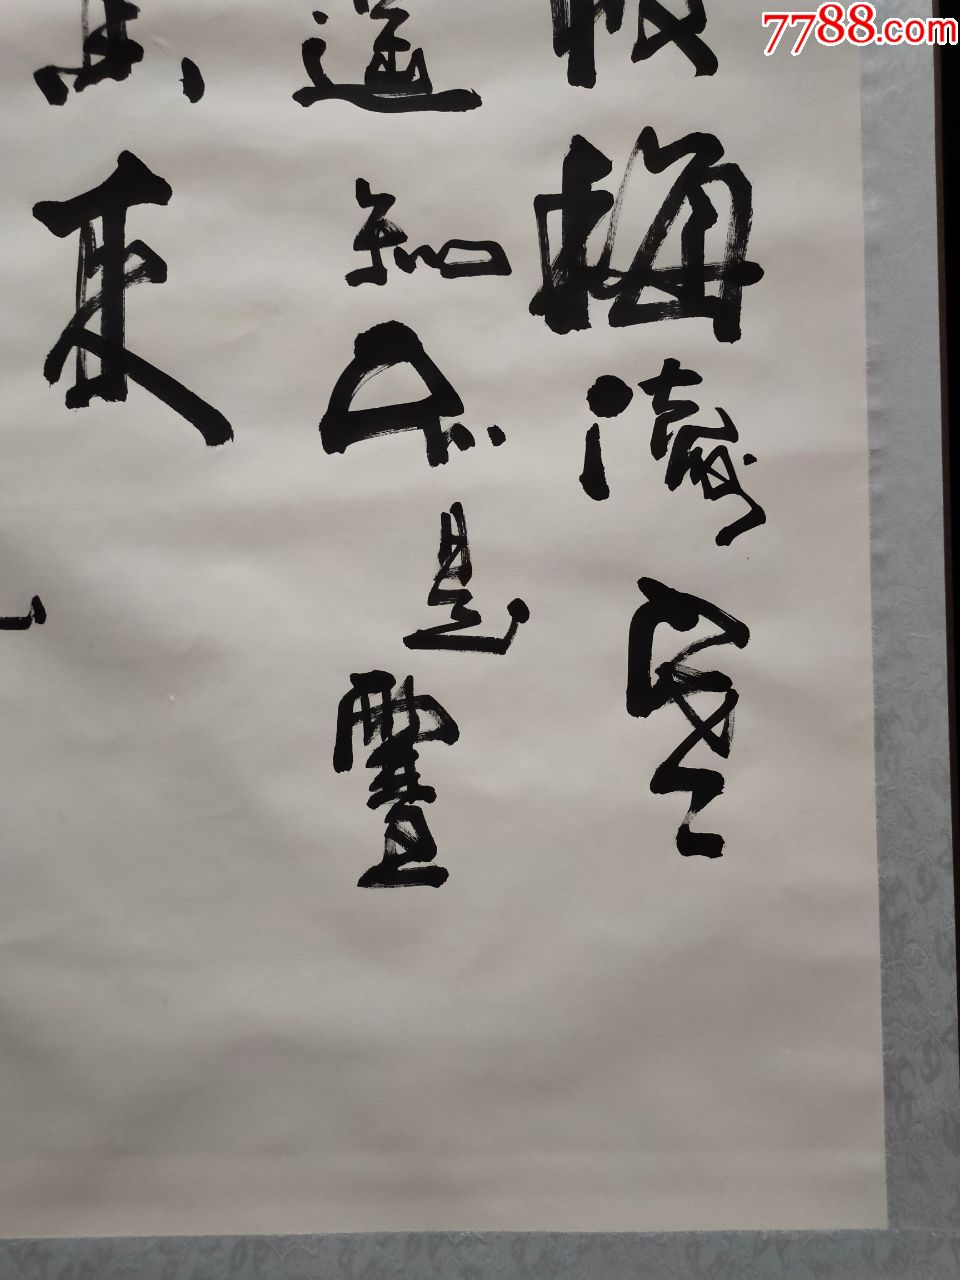 7788.com
枝梅凌寒
遥知不是雪
来